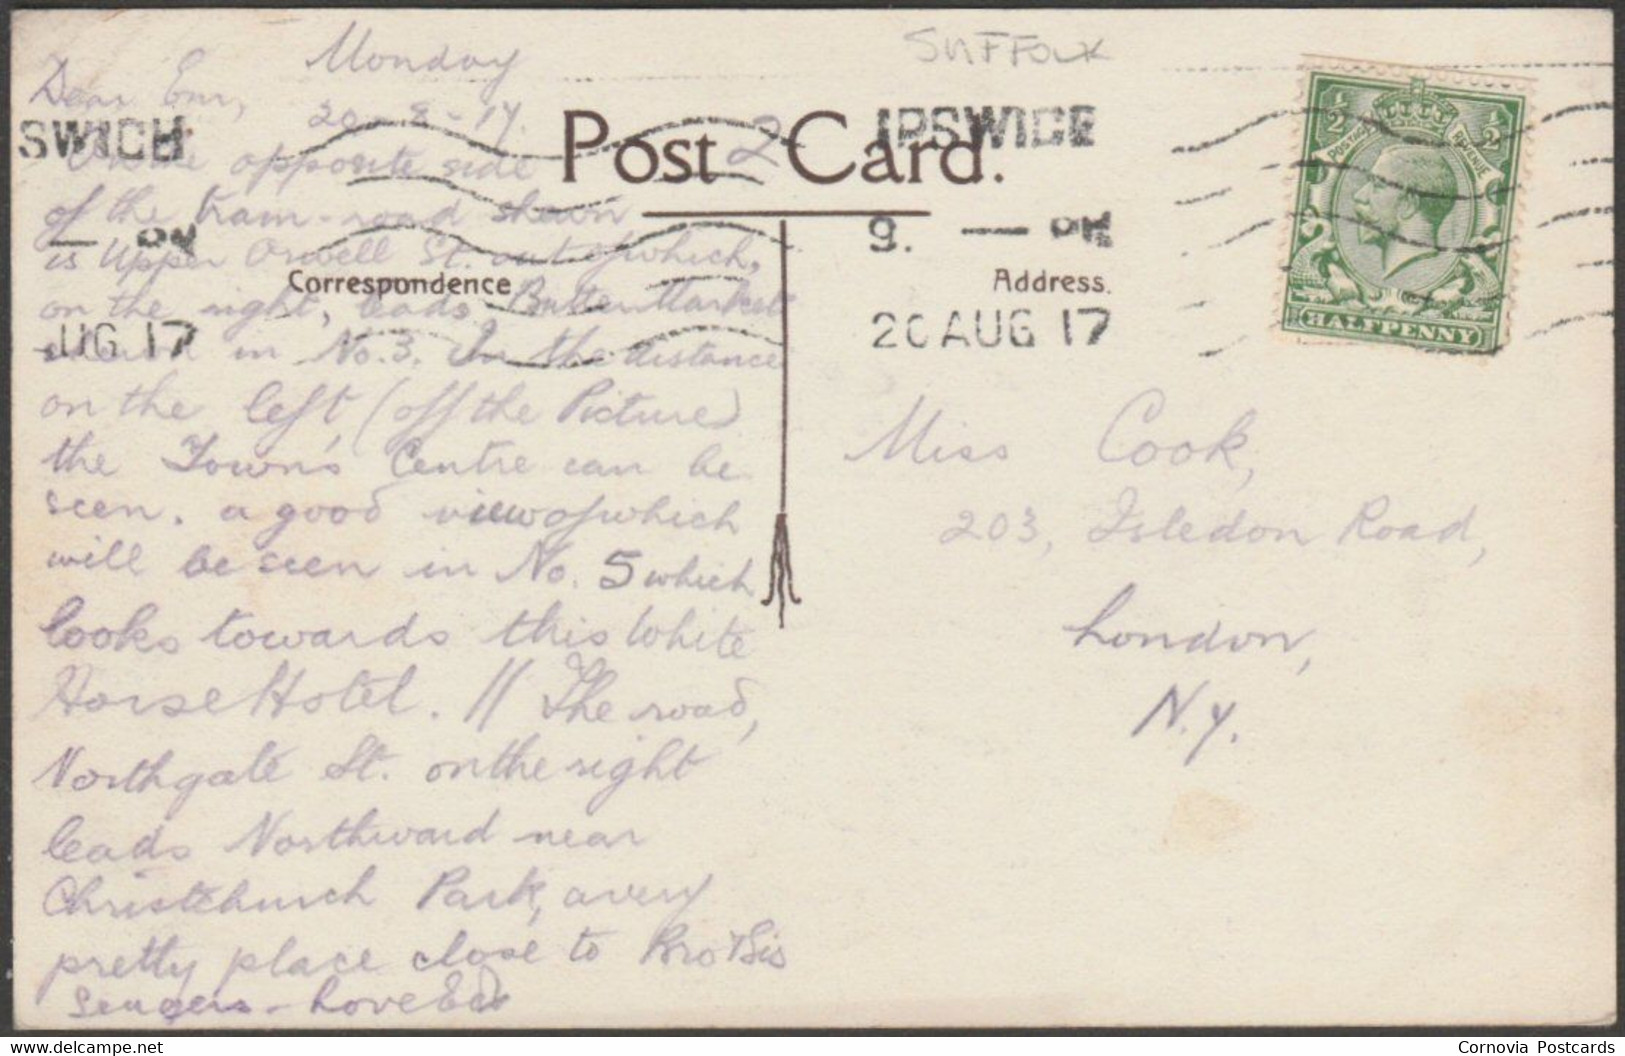 SUFFOLK
Monday
Dear Em,
20-8-17.
SWICH
Post Card.
2
IPSWICH
On the opposite side
of the tram-road shewn
— PM
9. — PM
is Upper Orwell St. out of which,
Correspondence
Address.
on the right, leads Butter Market
UG 17
20 AUG 17
shewn in No. 3. In the distance
on the left, (off the Picture)
the Town's Centre can be
seen. a good view of which
will be seen in No. 5 which
looks towards this White
Horse Hotel. // The road,
Northgate St. on the right
leads Northward near
Christchurch Park, a very
pretty place close to Bro & Sis
Sengers - Love Ed
Miss Cook,
203, Isledon Road,
London,
N.7.
½ ½
POSTAGE REVENUE
HALFPENNY
www.delcampe.net
Cornovia Postcards